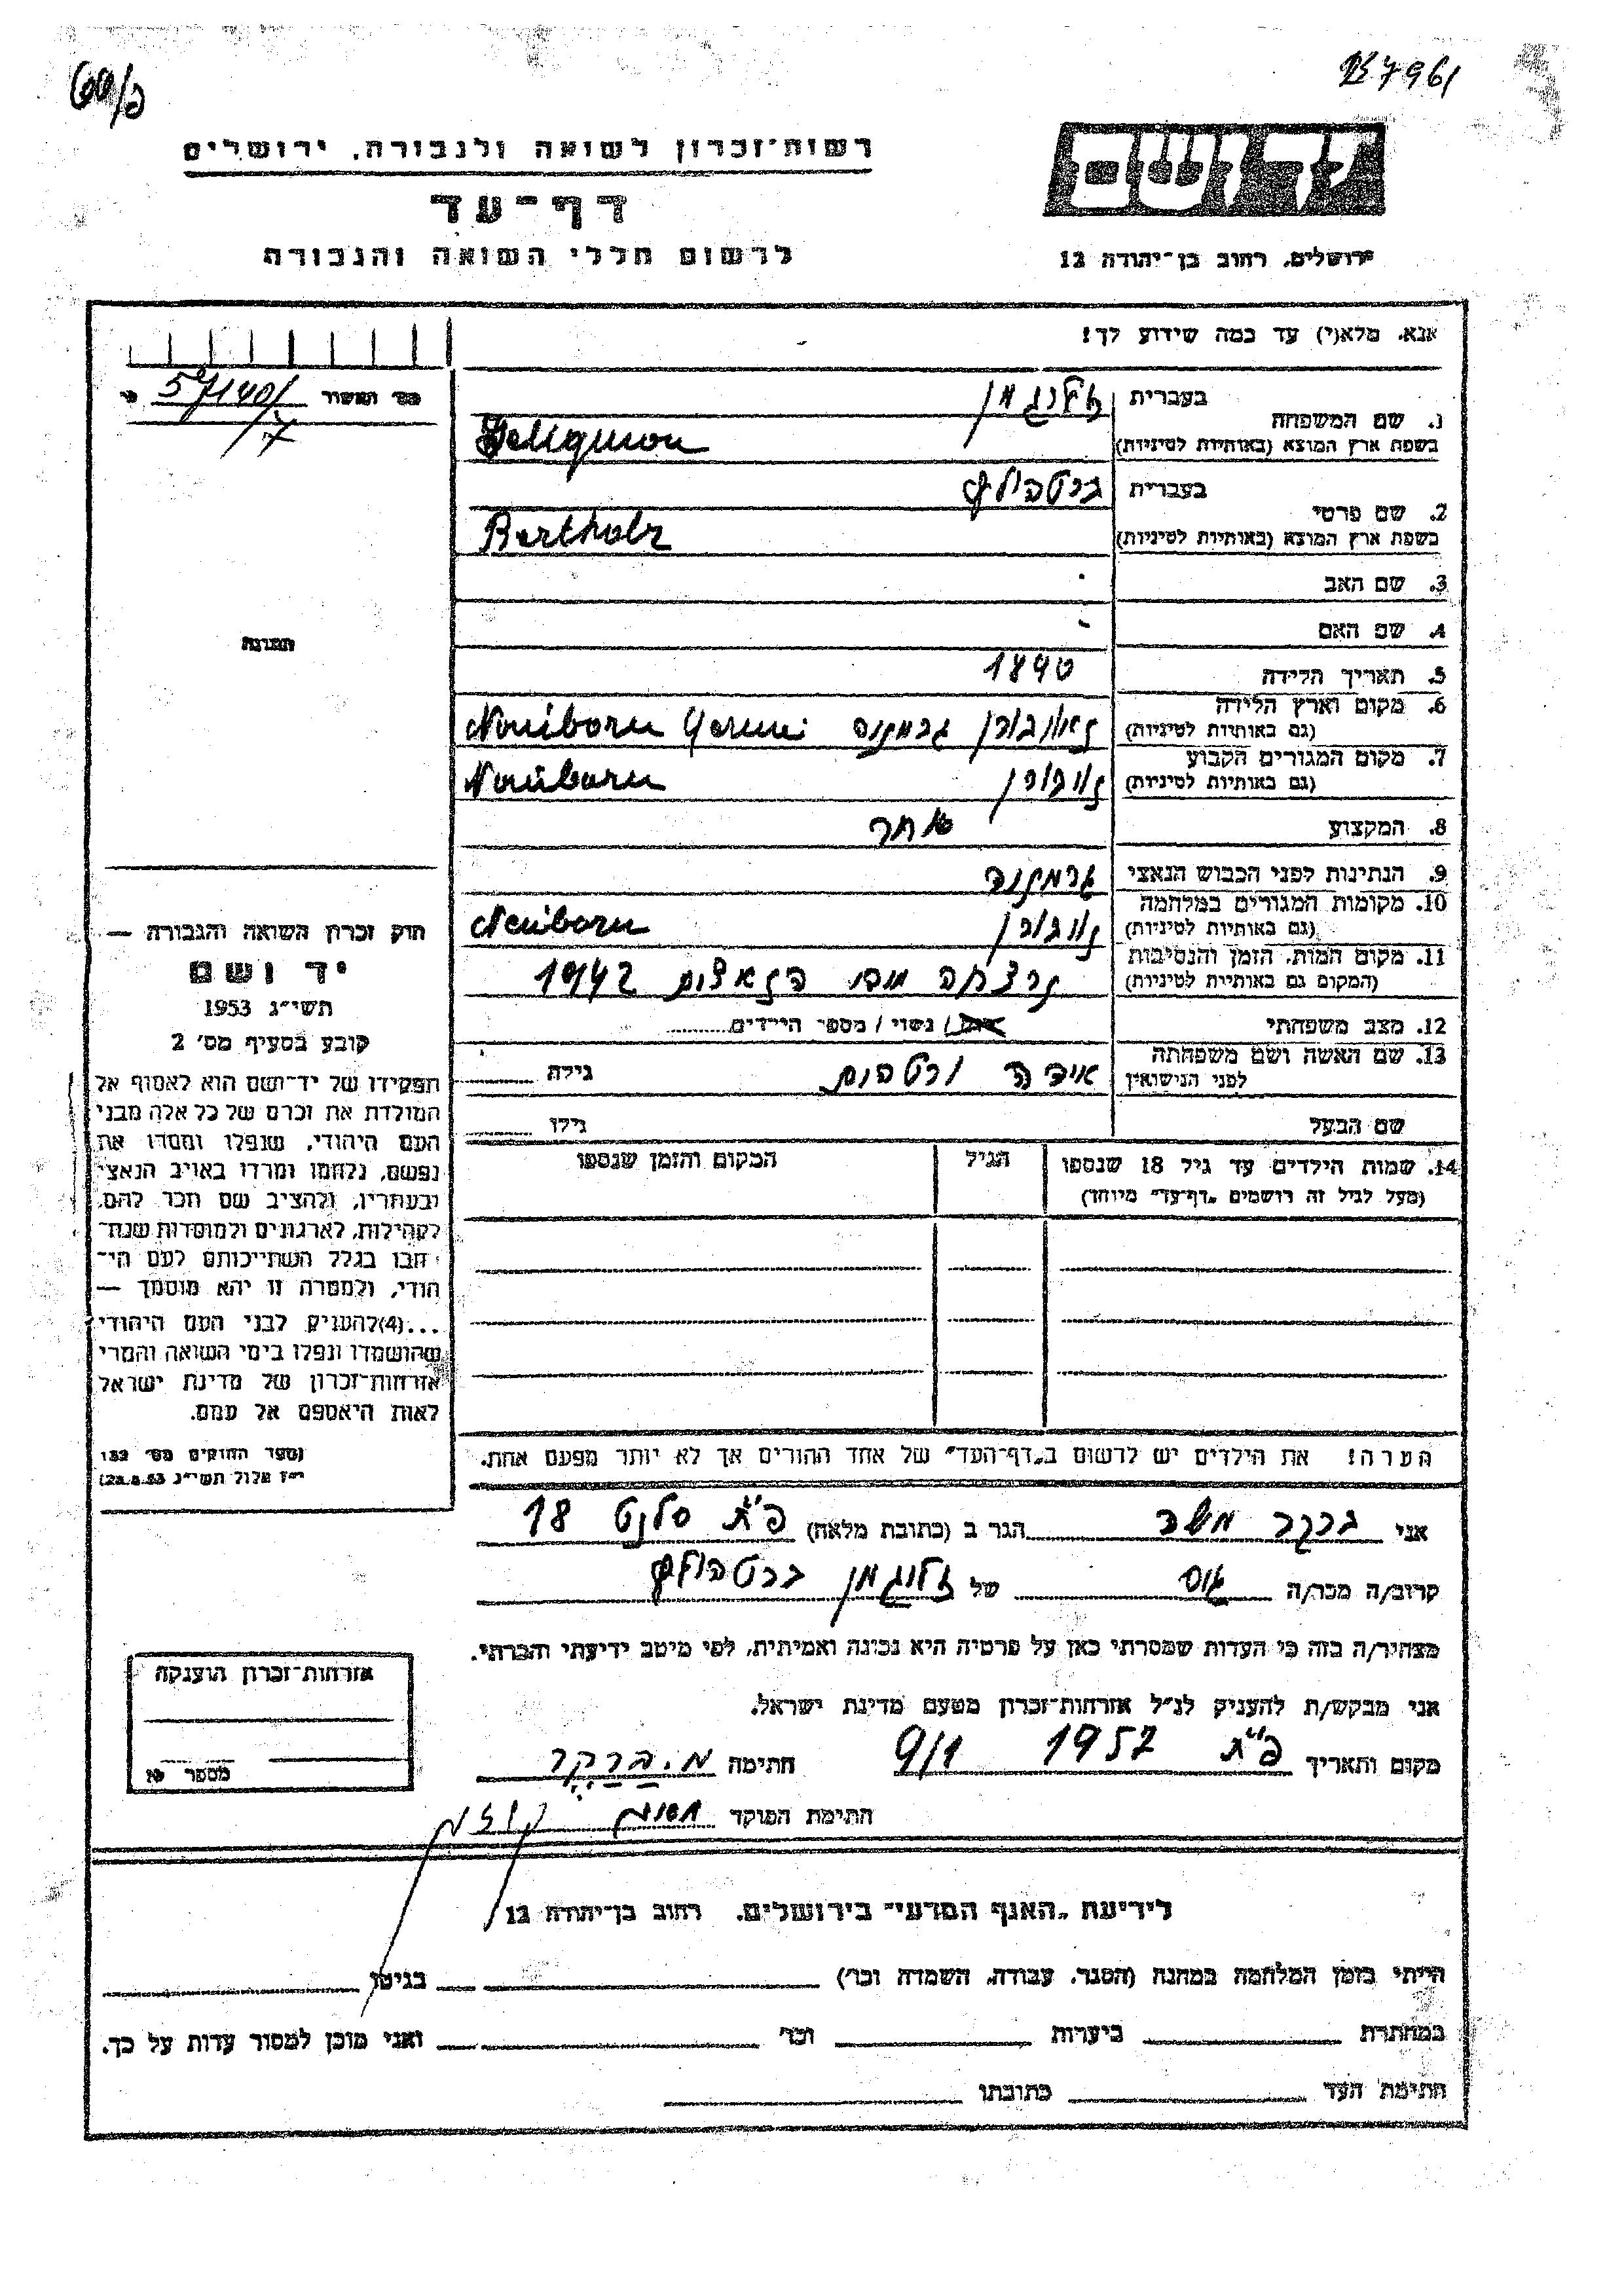 רשות־זכרון לשואה ולגבורה, ירושלים
דף־עד
לרשום חללי השואה והגבורה
ירושלים, רחוב בן־יהודה 12
אנא, מלא(י) עד כמה שידוע לך!
מס' האשור 57140/
1. שם המשפחה
בעברית זליגמן
בשפת ארץ המוצא (באותיות לטיניות)
2. שם פרטי
בעברית ברטהולץ
בשפת ארץ המוצא (באותיות לטיניות) Bertholz
3. שם האב
4. שם האם
תמונה
5. תאריך הלידה
6. מקום וארץ הלידה
(גם באותיות לטיניות)
7. מקום המגורים הקבוע
(גם באותיות לטיניות)
8. המקצוע סוחר
9. הנתינות לפני הכבוש הנאצי גרמניה
10. מקומות המגורים במלחמה
(גם באותיות לטיניות)
11. מקום המות, הזמן והנסיבות
(המקום גם באותיות לטיניות) 1942
12. מצב משפחתי נשוי / מספר הילדים
13. שם האשה ושם משפחתה
לפני הנישואין גילה
שם הבעל גילו
14. שמות הילדים עד גיל 18 שנספו
(מעל לגיל זה רושמים „דף־עד" מיוחד)
הגיל
המקום והזמן שנספו
חוק זכרון השואה והגבורה —
יד ושם
תשי״ג 1953
קובע בסעיף מס' 2
תפקידו של יד־ושם הוא לאסוף אל
המולדת את זכרם של כל אלה מבני
העם היהודי, שנפלו ומסרו את
נפשם, נלחמו ומרדו באויב הנאצי
ובעוזריו, ולהציב שם וזכר להם,
לקהילות, לארגונים ולמוסדות שנח־
רבו בגלל השתייכותם לעם הי־
הודי, ולמטרה זו יהא מוסמך —
...(4) להעניק לבני העם היהודי
שהושמדו ונפלו בימי השואה והמרי
אזרחות־זכרון של מדינת ישראל
לאות היאספם אל עמם.
(ספר החוקים מס' 132
י״ז אלול תשי״ג 28.8.53)
הערה! את הילדים יש לרשום ב„דף־העד" של אחד ההורים אך לא יותר מפעם אחת.
אני ברקר משה הגר ב (כתובת מלאה) פ״ת סלנט 18
קרוב/ה מכר/ה גיס של זליגמן ברטהולץ
מצהיר/ה בזה כי העדות שמסרתי כאן על פרטיה היא נכונה ואמיתית, לפי מיטב ידיעתי והכרתי.
אני מבקש/ת להעניק לנ״ל אזרחות־זכרון מטעם מדינת ישראל.
מקום ותאריך פ״ת 1957 9/1 חתימה מ. ברקר
חתימת הפוקד
אזרחות־זכרון הוענקה
מספר
לידיעת „האגף המדעי" בירושלים, רחוב בן־יהודה 12
הייתי בזמן המלחמה במחנה (הסגר, עבודה, השמדה וכו') בגיטו
במחתרת ביערות וכו' ואני מוכן למסור עדות על כך.
חתימת העד כתובתו